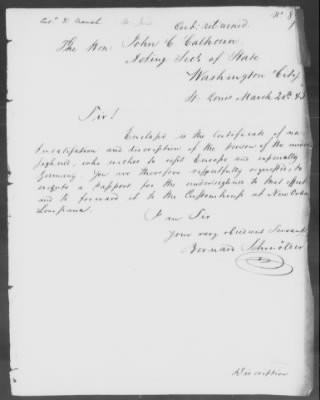 No 8
Certi. returned.
The Hon. John C Calhoun
Acting Secy of State
Washington City
St. Louis March 20th 45
Sir!
Enclosed is the Certificate of na-
turalization and description of the person of the under-
signed, who wishes to visit Europe and especially
Germany. You are therefore respectfully requested to
execute a passport for the undersigned to that effect
and to forward it to the Customhouse at New Orleans
Louisiana.
I am Sir
Your very obedient Servant
Bernard
Description